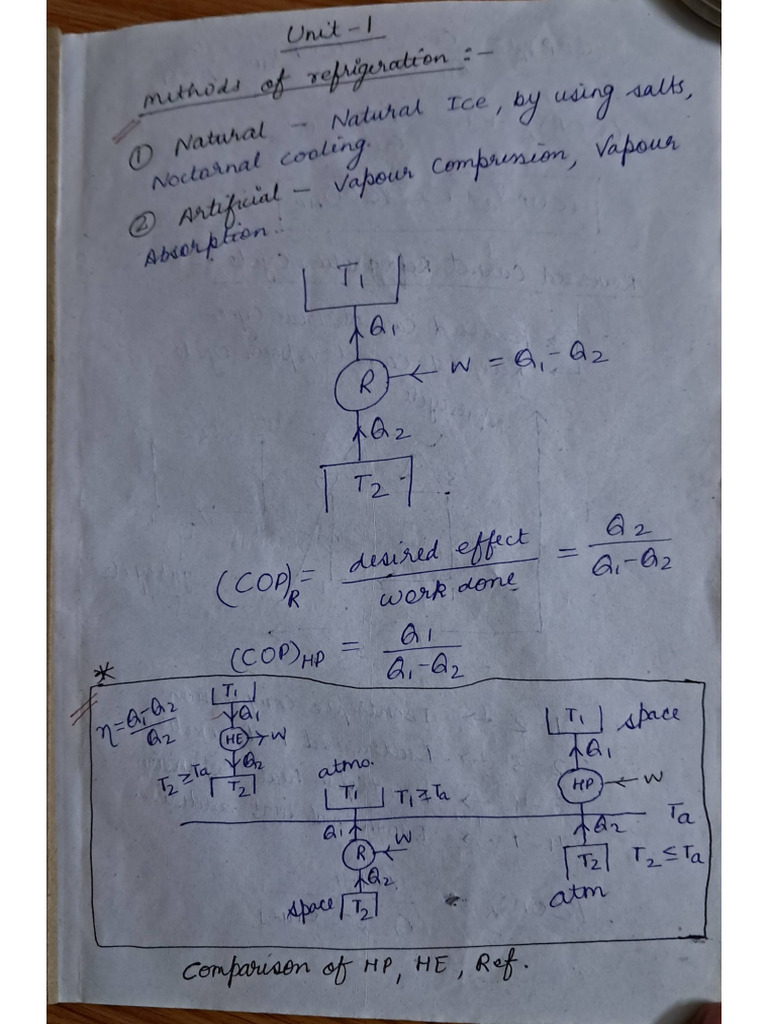 Unit-1
Methods of refrigeration:-
① Natural - Natural Ice, by using salts,
Nocturnal cooling.
② Artificial - Vapour Compression, Vapour
Absorption:
T1
Q1
R
W = Q1-Q2
Q2
T2
(COP)R = desired effect / work done = Q2 / Q1-Q2
(COP)HP = Q1 / Q1-Q2
*
η = Q1-Q2 / Q2
T1
Q1
HE
W
Q2
T2 ≥ Ta
T2
atmo.
T1
T1 ≥ Ta
Q1
R
W
Q2
space
T2
T1
space
Q1
HP
W
Ta
Q2
T2
T2 ≤ Ta
atm
Comparison of HP, HE, Ref.